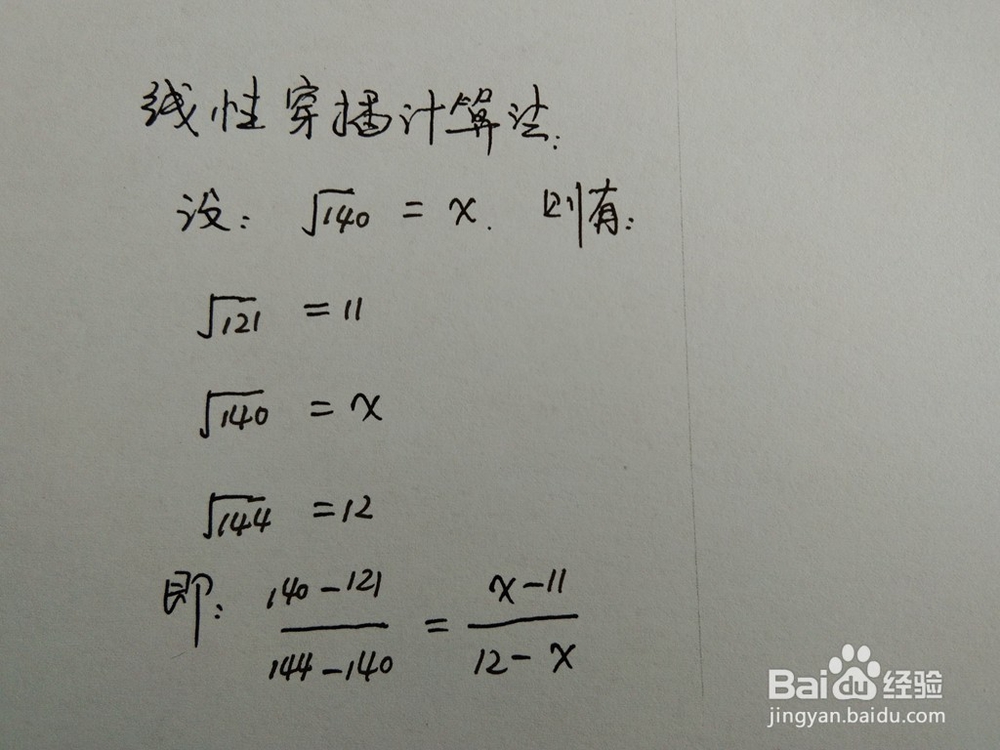 线性穿插计算法:
设: √140 = x. 则有:
√121 = 11
√140 = x
√144 = 12
即: (140-121)/(144-140) = (x-11)/(12-x)
Baidu经验
jingyan.baidu.com